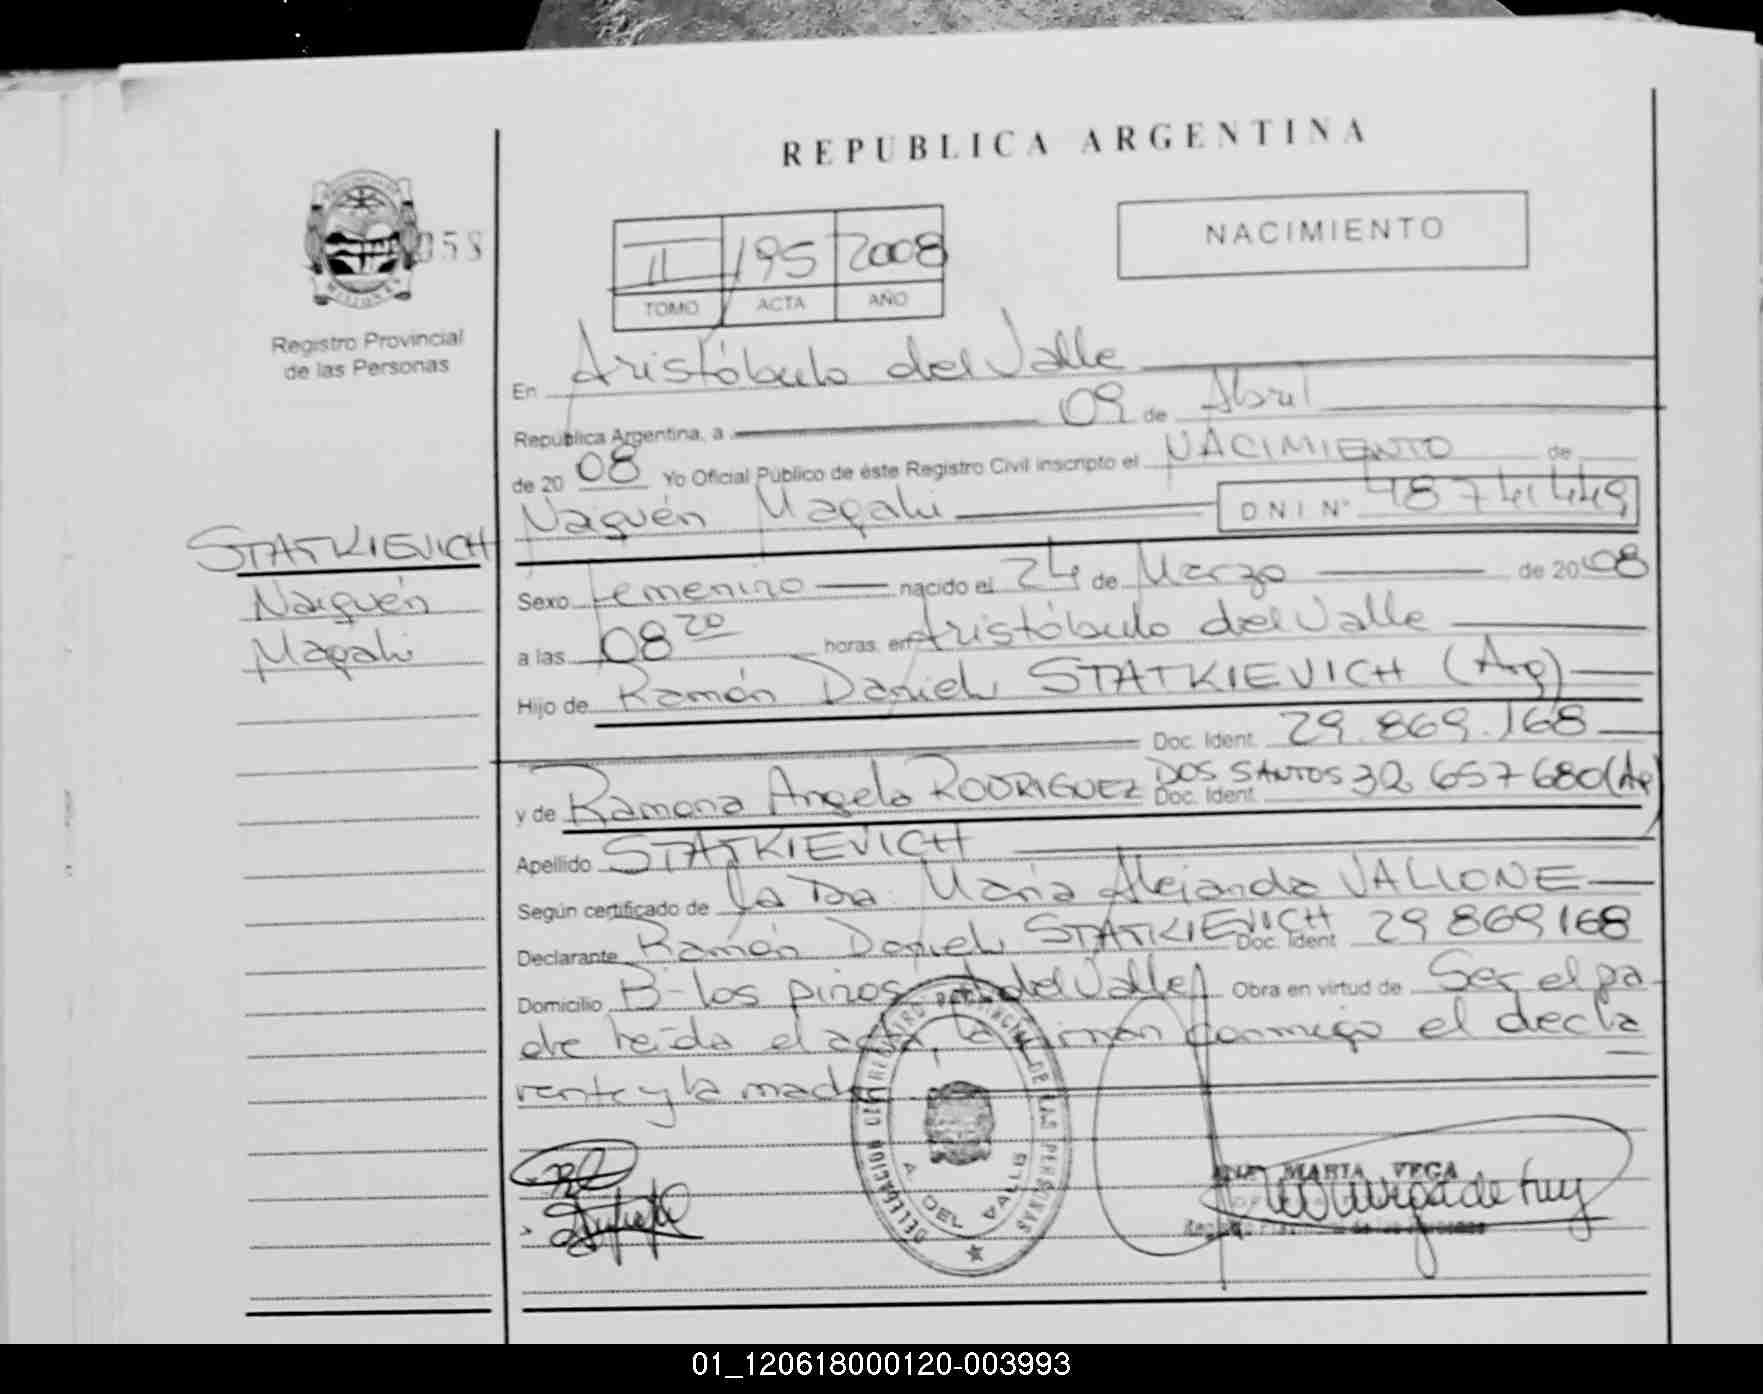 REPUBLICA ARGENTINA
NACIMIENTO
058
MISIONES
Registro Provincial
de las Personas
II 195 2008
TOMO ACTA AÑO
En Aristóbulo del Valle
República Argentina, a 09 de Abril
de 20 08 Yo Oficial Público de éste Registro Civil inscripto el NACIMIENTO de
Naiquén Magali DNI Nº 48741449
STATKIEVICH
Naiquén
Magali
Sexo Femenino nacido el 24 de Marzo de 20 08
a las 08 20 horas, en Aristóbulo del Valle
Hijo de Ramón Daniel STATKIEVICH (Arg)
Doc. Ident. 29.869.168
y de Ramona Angela RODRIGUEZ DOS SANTOS Doc. Ident. 32 657 680 (Arg)
Apellido STATKIEVICH
Según certificado de la Dra. María Alejandra VALLONE
Declarante Ramón Daniel STATKIEVICH Doc. Ident 29 869 168
Domicilio B- los pinos A. del Valle Obra en virtud de Ser el pa
dre leída el acta, la firman conmigo el decla
rante y la madre
DELEGACION DEL REGISTRO PROVINCIAL DE LAS PERSONAS
A. DEL VALLE
MARIA VEGA
01_120618000120-003993